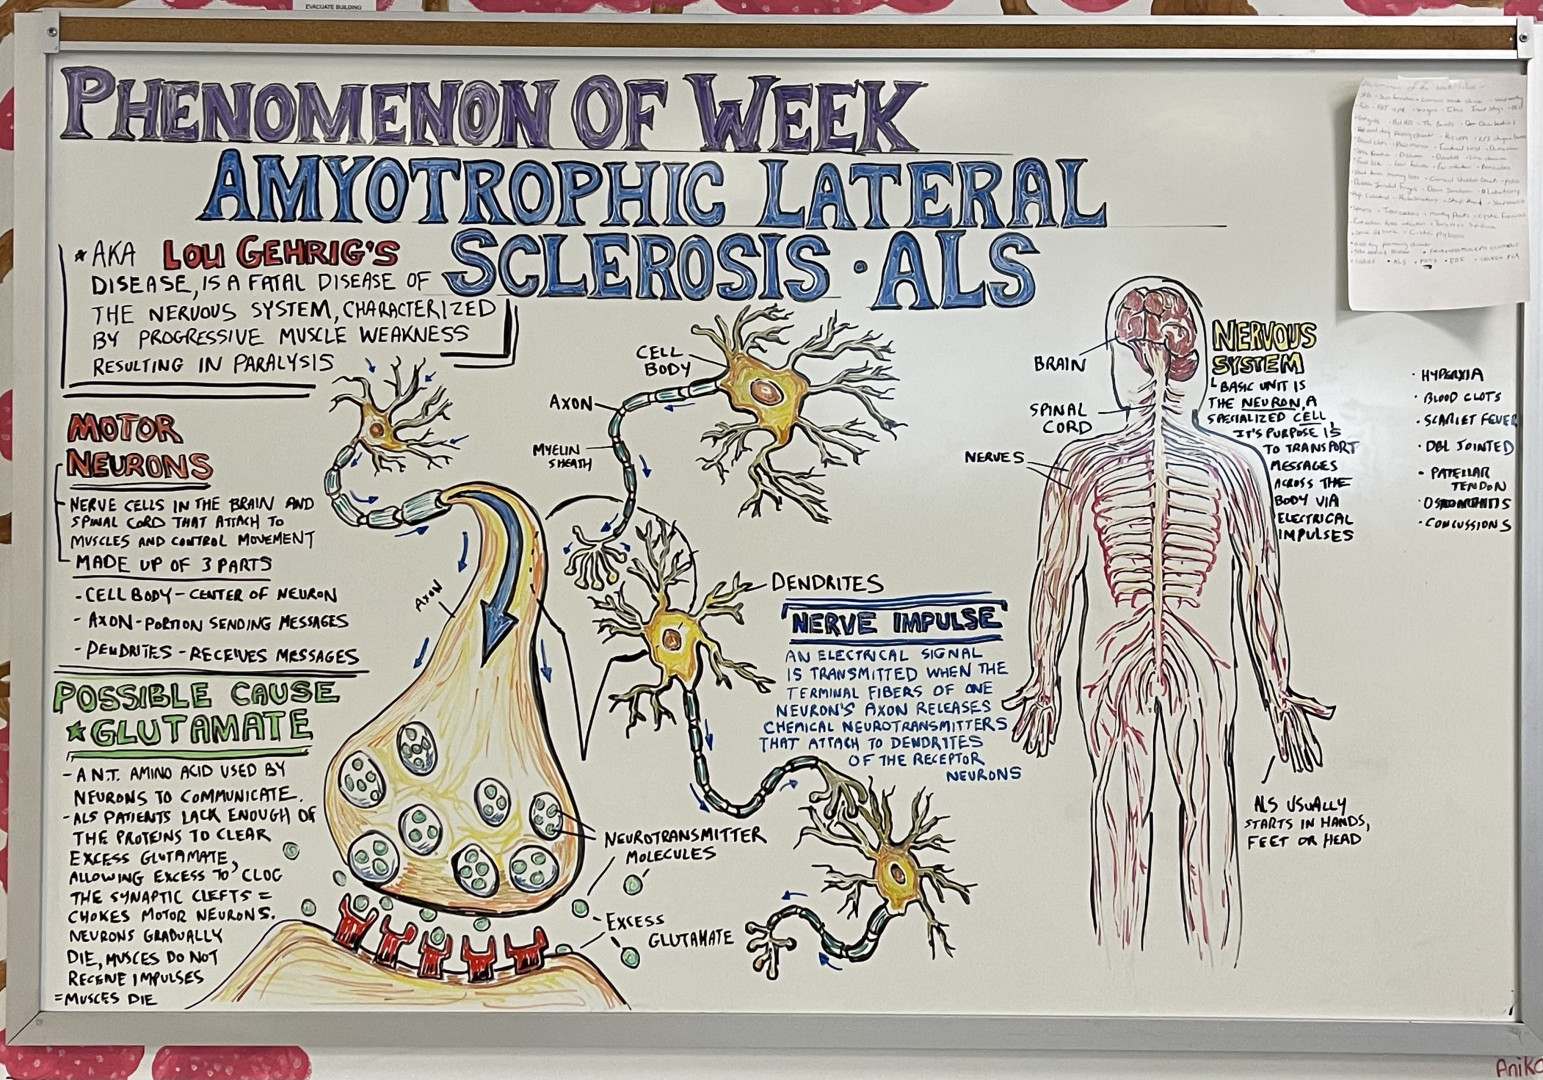 EVACUATE BUILDING
PHENOMENON OF WEEK
AMYOTROPHIC LATERAL
SCLEROSIS · ALS
* AKA LOU GEHRIG'S
DISEASE, IS A FATAL DISEASE OF
THE NERVOUS SYSTEM, CHARACTERIZED
BY PROGRESSIVE MUSCLE WEAKNESS
RESULTING IN PARALYSIS
MOTOR
NEURONS
NERVE CELLS IN THE BRAIN AND
SPINAL CORD THAT ATTACH TO
MUSCLES AND CONTROL MOVEMENT
MADE UP OF 3 PARTS
- CELL BODY - CENTER OF NEURON
- AXON - PORTION SENDING MESSAGES
- DENDRITES - RECEIVES MESSAGES
POSSIBLE CAUSE
* GLUTAMATE
- A N.T. AMINO ACID USED BY
NEURONS TO COMMUNICATE.
- ALS PATIENTS LACK ENOUGH OF
THE PROTEINS TO CLEAR
EXCESS GLUTAMATE,
ALLOWING EXCESS TO CLOG
THE SYNAPTIC CLEFTS =
CHOKES MOTOR NEURONS.
NEURONS GRADUALLY
DIE, MUSCES DO NOT
RECEIVE IMPULSES
= MUSCES DIE
AXON
CELL
BODY
AXON
MYELIN
SHEATH
DENDRITES
NERVE IMPULSE
AN ELECTRICAL SIGNAL
IS TRANSMITTED WHEN THE
TERMINAL FIBERS OF ONE
NEURON'S AXON RELEASES
CHEMICAL NEUROTRANSMITTERS
THAT ATTACH TO DENDRITES
OF THE RECEPTOR
NEURONS
NEUROTRANSMITTER
MOLECULES
EXCESS
GLUTAMATE
BRAIN
SPINAL
CORD
NERVES
NERVOUS
SYSTEM
BASIC UNIT IS
THE NEURON, A
SPECIALIZED CELL,
IT'S PURPOSE IS
TO TRANSPORT
MESSAGES
ACROSS THE
BODY VIA
ELECTRICAL
IMPULSES
ALS USUALLY
STARTS IN HANDS,
FEET OR HEAD
· HYPERXIA
· BLOOD CLOTS
· SCARLET FEVER
· DBL JOINTED
· PATELLAR
TENDON
· CONCUSSIONS
Anika